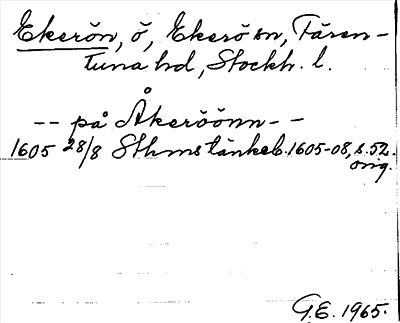 Ekerön, ö, Ekerö sn, Fären-
tuna hd, Stockh. l.
-- på Åkeröönn --
1605 28/8 Sthms tänkeb. 1605-08, s. 52.
orig.
G.E. 1965.